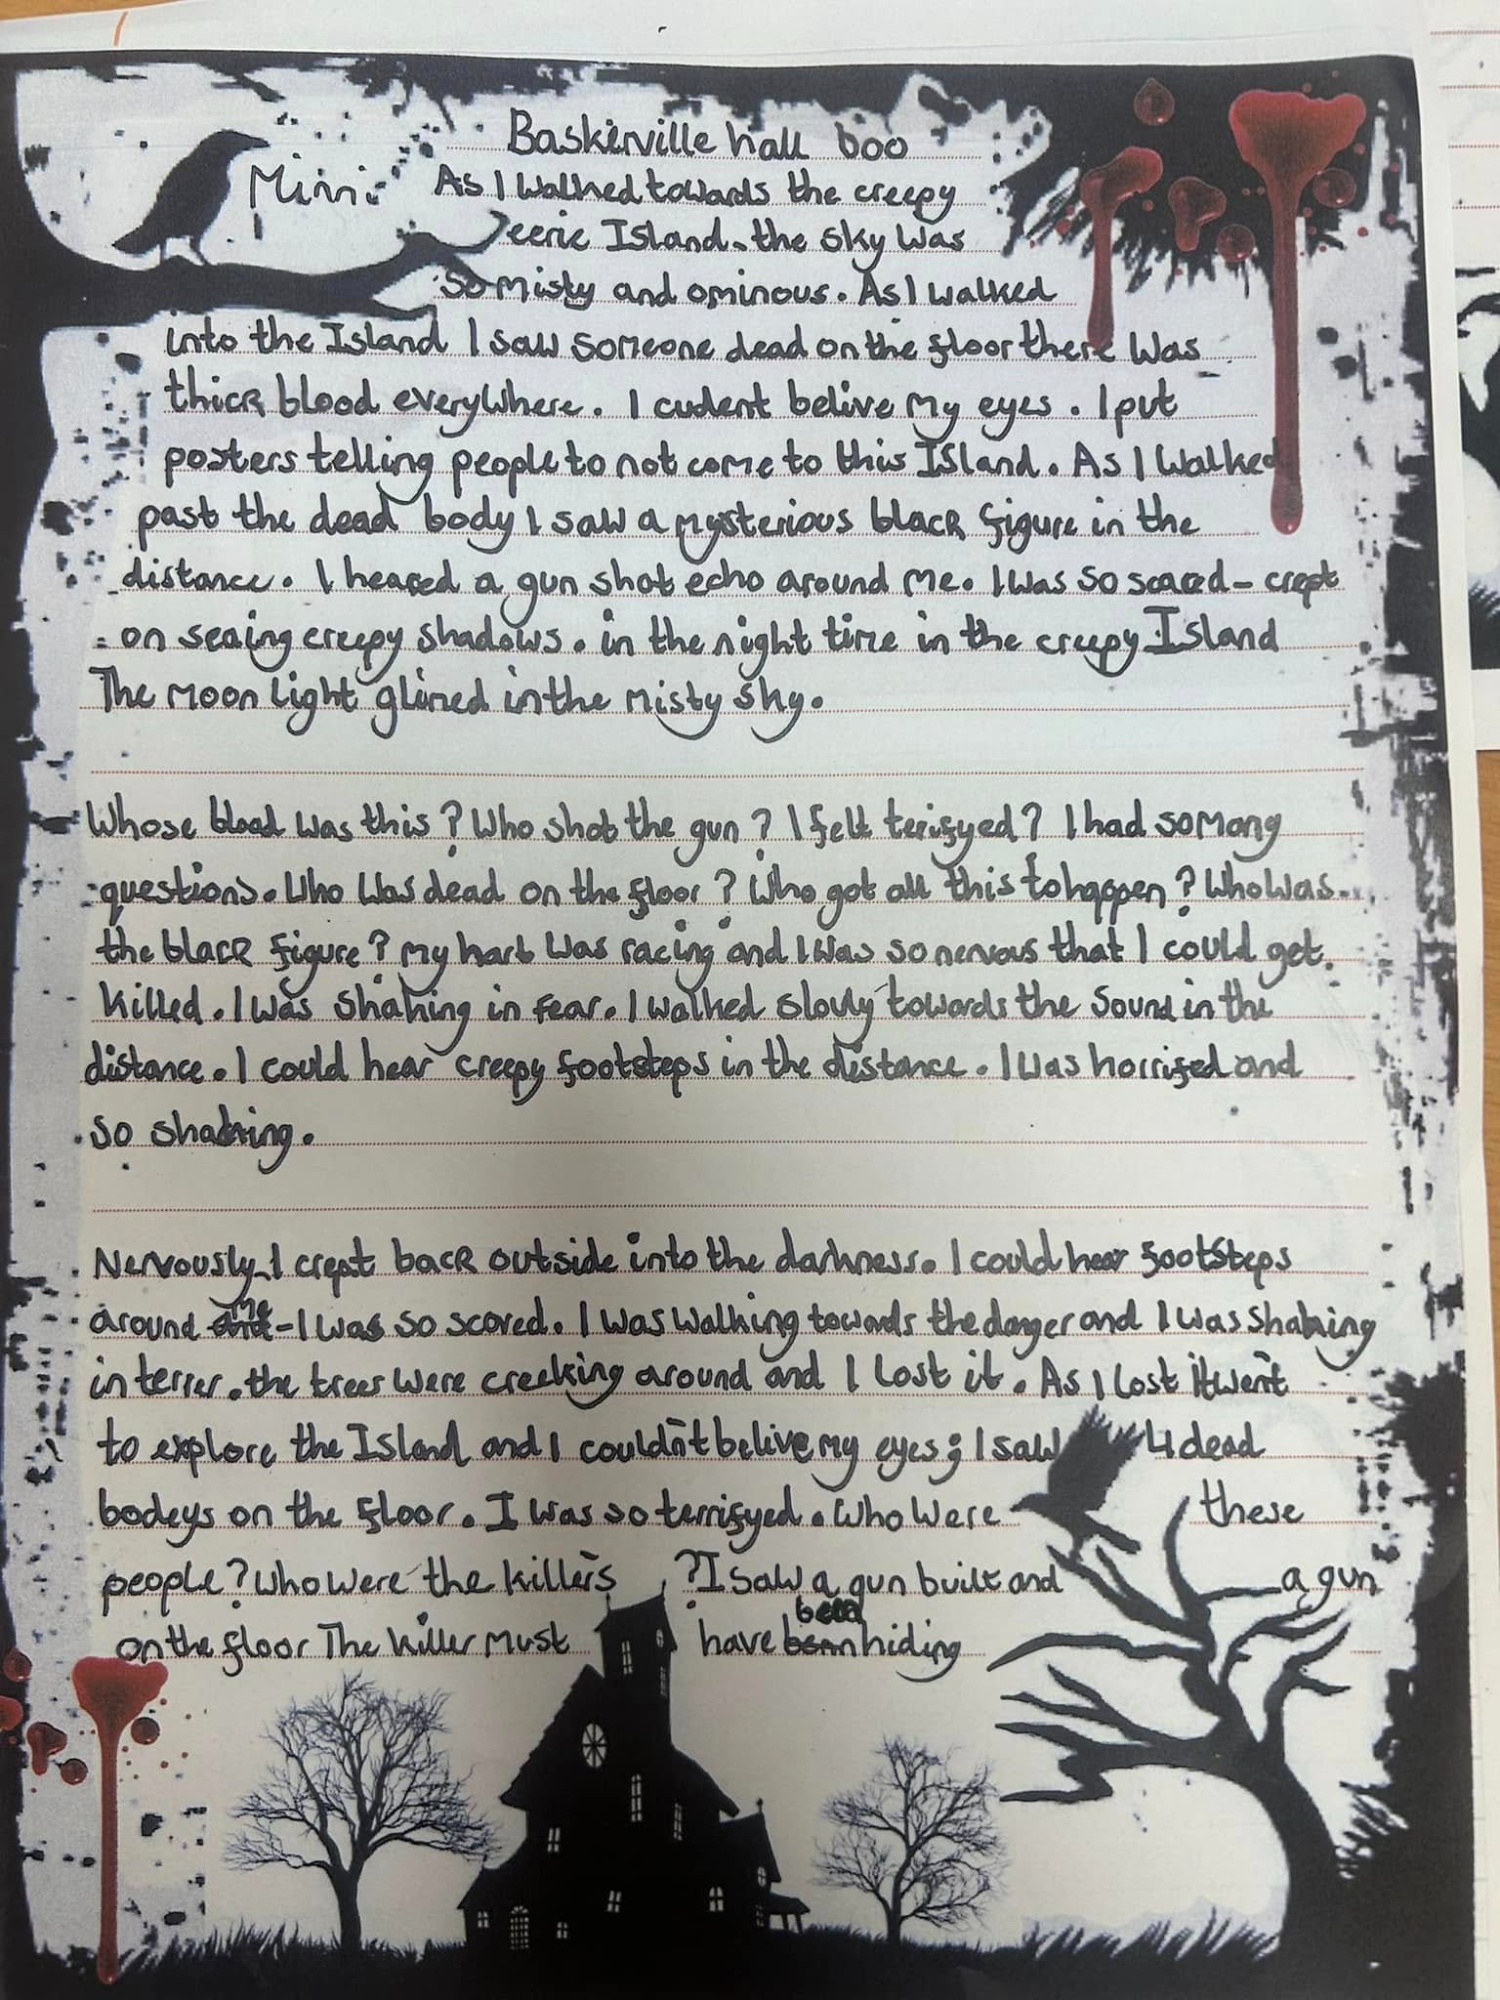 Baskerville hall boo
Mini
As I walked towards the creepy
eerie Island. the sky was
so misty and ominous. As I walked
into the Island I saw someone dead on the floor there was
thick blood everywhere. I cudent belive my eyes. I put
posters telling people to not come to this Island. As I walked
past the dead body I saw a mysterious black figure in the
distance. I heared a gun shot echo around me. I was so scared - crept
on seaing creepy shadows. in the night time in the creepy Island
The moon light glimed in the misty sky.
Whose blood was this? Who shot the gun? I felt terifyed? I had so many
questions. Who was dead on the floor? Who got all this to happen? Who was
the black figure? My hart was racing and I was so nervous that I could get
killed. I was shaking in fear. I walked slowly towards the sound in the
distance. I could hear creepy footsteps in the distance. I was horrifed and
so shaking.
Nervously I crept back outside into the darkness. I could hear footsteps
around me - I was so scared. I was walking towards the danger and I was shaking
in terrer. the trees were creeking around and I lost it. As I lost it went
to explore the Island and I couldn't belive my eyes; I saw 4 dead
bodeys on the floor. I was so terrifyed. Who were these
people? Who were the killers? I saw a gun built and a gun
on the floor The killer must have been hiding